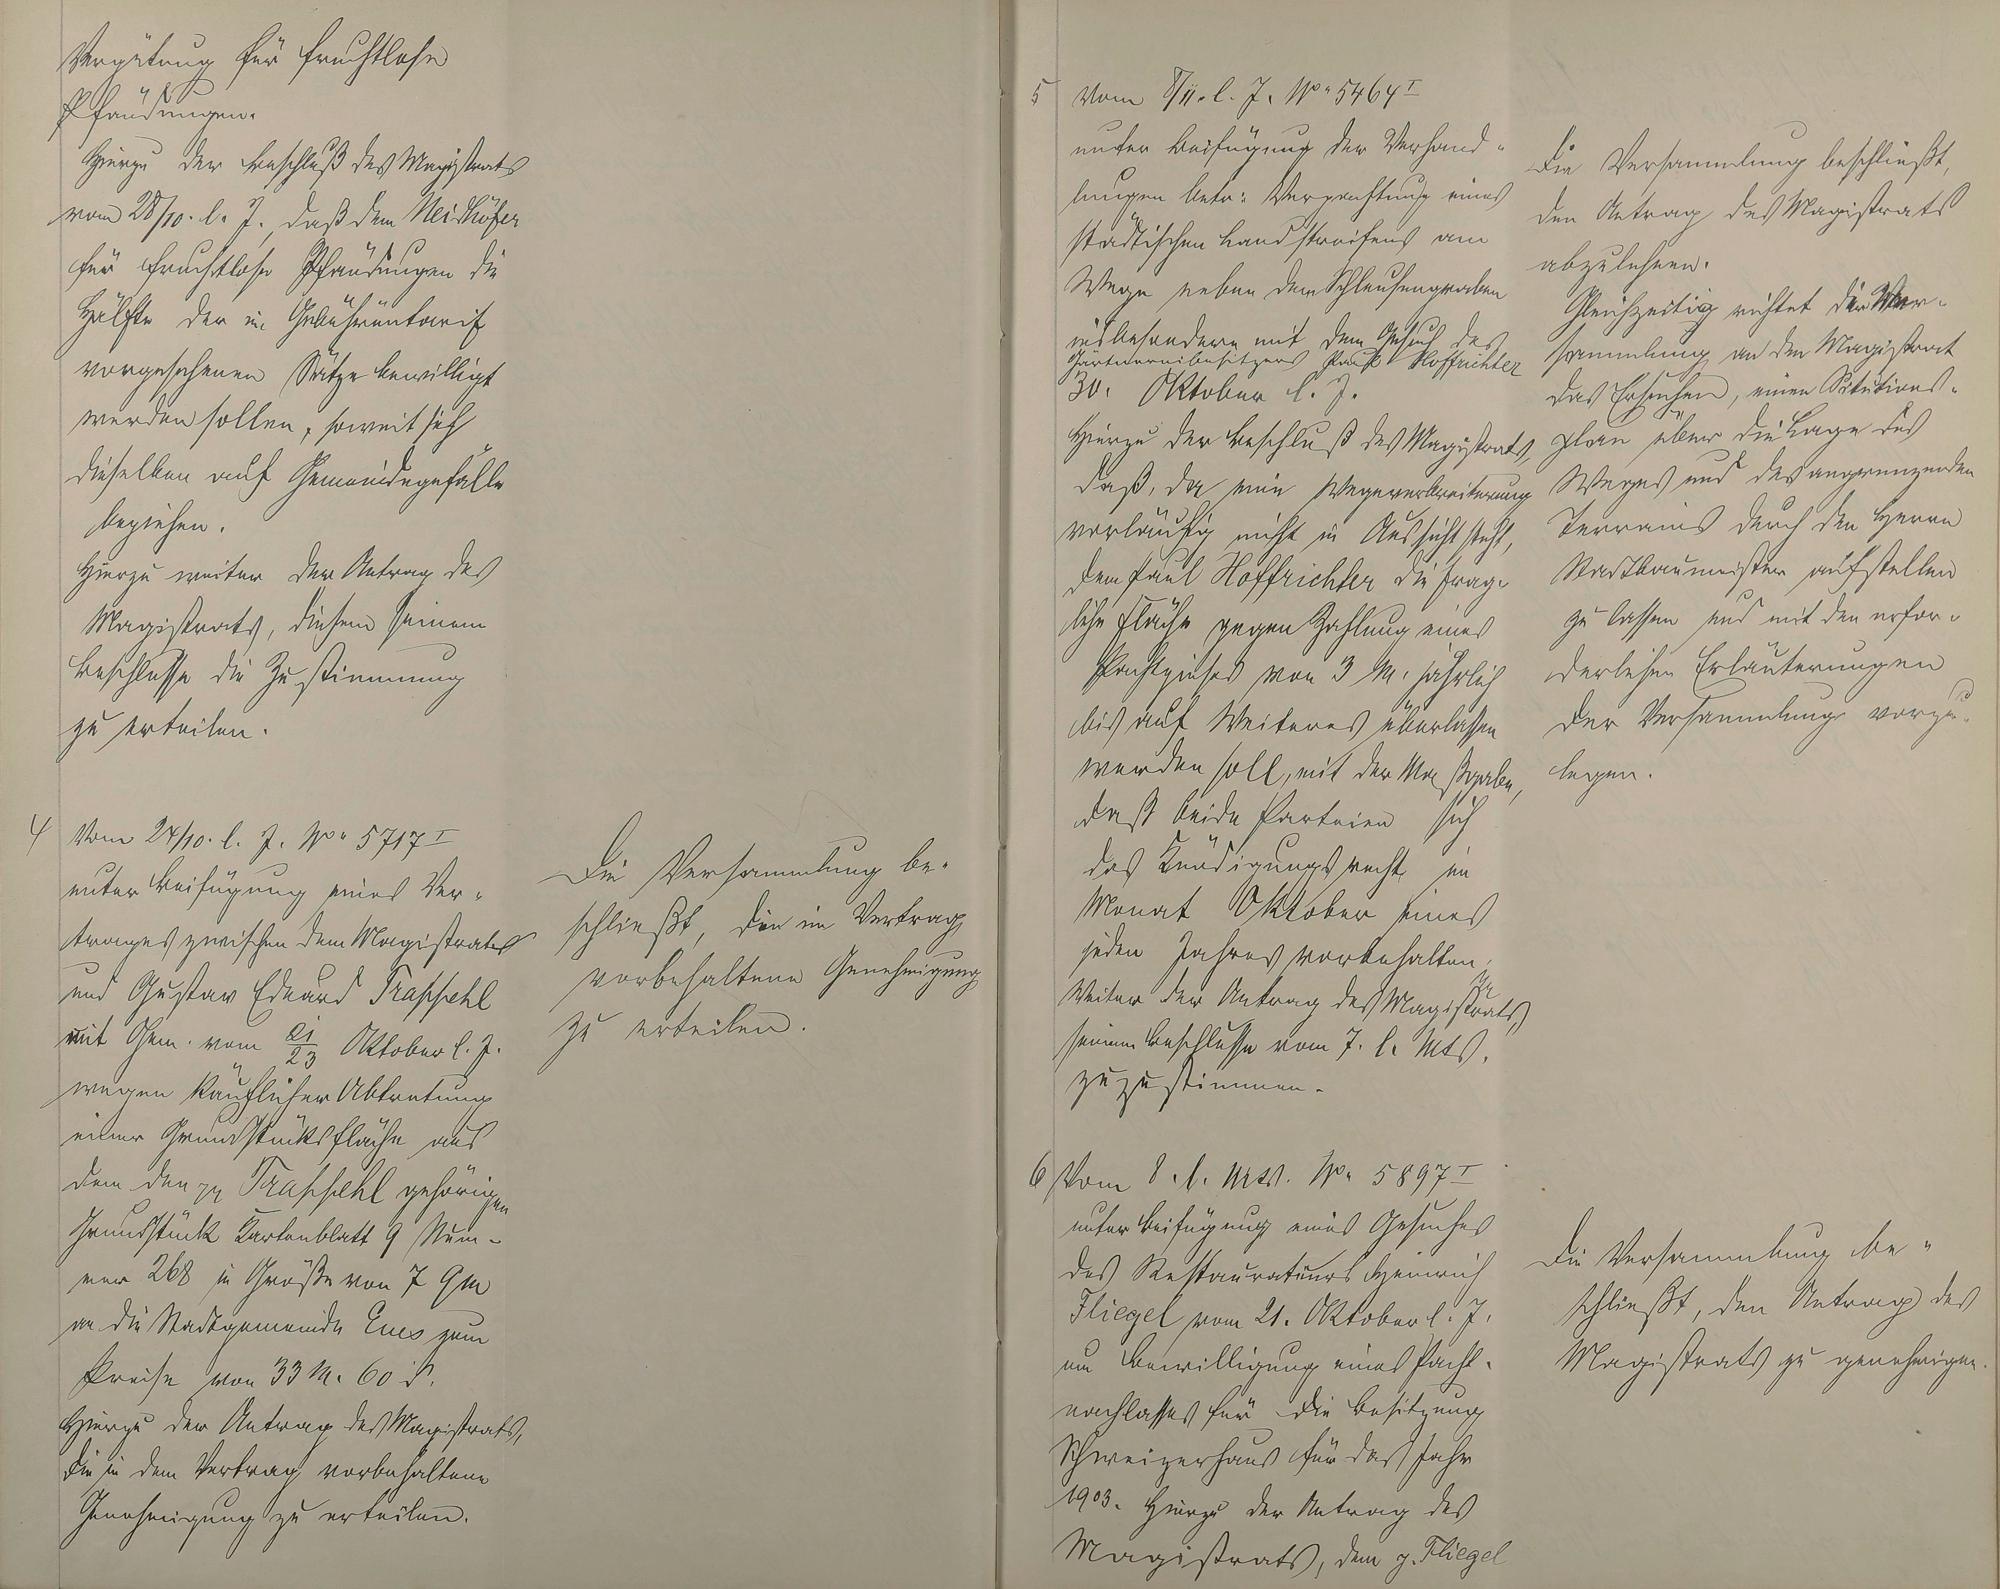 Vergütung für fruchtlose
Pfändungen.
Hierzu der Beschluß des Magistrats
vom 28/10. l. J., daß dem Neidhöfer
für fruchtlose Pfändungen die
Hälfte der im Gebührentarif
vorgesehenen Sätze bewilligt
werden sollen, soweit sich
dieselben auf Gemeindegefälle
beziehen.
Hierzu weiter der Antrag des
Magistrats, diesem seinem
Beschlusse die Zustimmung
zu erteilen.
4 Vom 24/10. l. J. No. 5717 I
unter Beifügung eines Ver-
trages zwischen dem Magistrate
und Gustav Eduard Trasspehl
mit Gem. vom 21/23 Oktober l. J.
wegen käuflicher Abtretung
einer Grundstücksfläche aus
dem den pp Trasspehl gehörigen
Grundstück Kartenblatt 9 Num-
mer 268 in Größe von 7 qm
an die Stadtgemeinde Ems zum
Preise von 33 M. 60 d.
Hierzu der Antrag des Magistrats,
die in dem Vertrag vorbehaltene
Genehmigung zu erteilen.
Die Versammlung be-
schließt, die im Vertrag
vorbehaltene Genehmigung
zu erteilen.
5 Vom 8/11. l. J. No. 5464 I
unter Beifügung der Verhand-
lungen betr: Verpachtung eines
städtischen Landstreifens am
Wege neben dem Schleusengraben
insbesondere mit dem Gesuch des
Gärtnereibesitzers Paul Hoffrichter
30. Oktober l. J.
Hierzu der Beschluß des Magistrats,
daß, da eine Wegeverbreiterung
vorläufig nicht in Aussicht steht,
dem Paul Hoffrichter die frag-
liche Fläche gegen Zahlung eines
Pachtzinses von 3 M. jährlich
bis auf Weiteres überlassen
werden soll, mit der Maßgabe,
daß beide Parteien sich
das Kündigungsrecht im
Monat Oktober eines
jeden Jahres vorbehalten.
Weiter der Antrag des Magistrats,
seinem Beschlusse vom 7. l. Mts.
zuzustimmen.
Die Versammlung beschließt,
den Antrag des Magistrats
abzulehnen.
Gleichzeitig richtet die Ver-
sammlung an den Magistrat
das Ersuchen, einen Situations-
plan über die Lage des
Weges und des angrenzenden
Terrains durch den Herrn
Stadtbaumeister aufstellen
zu lassen und mit den erfor-
derlichen Erläuterungen
der Versammlung vorzu-
legen.
6 Vom 8. l. Mts. No. 5897 I
unter Beifügung eines Gesuches
des Restaurateurs Heinrich
Fliegel vom 21. Oktober l. J.
um Bewilligung eines Pacht-
nachlasses für die Besitzung
Schweizerhaus für das Jahr
1903. Hierzu der Antrag des
Magistrats, dem p. Fliegel
Die Versammlung be-
schließt, den Antrag des
Magistrats zu genehmigen.